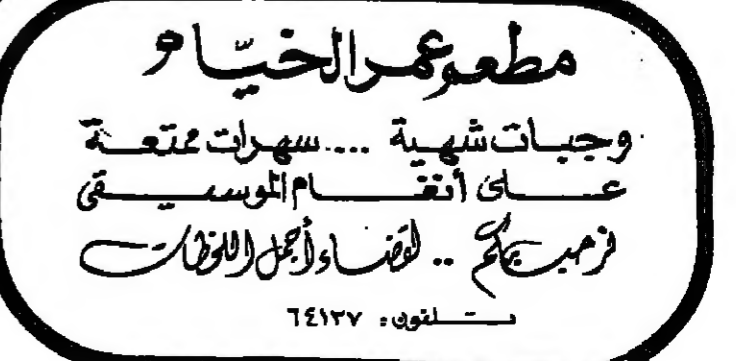 مطعم عمر الخيّام
وجبات شهية .... سهرات ممتعة
على أنغام الموسيقى
نرحب بكم .. لقضاء أجمل اللحظات
تلفون: ٦٤١٢٧